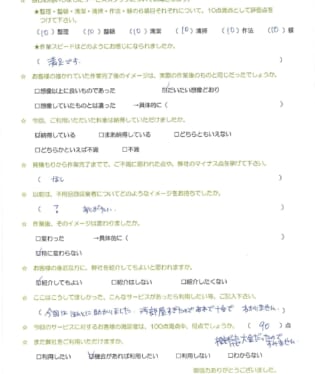 ★整理・整頓・清潔・清掃・作法・躾の各項目それぞれについて、10点満点として評価点をつけて下さい。
(10)整理 (10)整頓 (10)清潔 (10)清掃 (10)作法 (10)躾
★作業スピードはどのようにお感じになられましたか。
( 満足です。 )
☆ お客様の描かれていた作業完了後のイメージは、実際の作業後のものと同じだったでしょうか。
□想像以上に良いものであった ☑だいたい想像どおり
□想像していたものとは違った →具体的に( )
☆ 今回、ご利用いただいた料金は納得していただけましたか。
☑納得している □まあ納得している □どちらともいえない
□どちらかといえば不満 □不満
☆ 見積もりから作業完了までで、ご不満に思われた点や、弊社のマイナス点を挙げて下さい。
( なし )
☆ 以前は、不用品回収業者についてどのようなイメージをお持ちでしたか。
( ? )
☆ 作業後、そのイメージは変わりましたか。
□変わった →具体的に( )
☑特に変わらない
☆ お客様の身近な方に、弊社を紹介してもよいと思われますか。
☑紹介してもよい □紹介はしない □紹介したくない
☆ ここはこうしてほしかった、こんなサービスがあったら利用したい等、ご記入下さい。
( 今回は ほんとに助かりました。 )
☆ 今回のサービスに対するお客様の満足度は、100点満点中、何点でしょうか。 ( 90 )点
☆ また弊社をご利用いただけますか。
□利用したい ☑機会があれば利用したい □利用しない □わからない
ご協力ありがとうございました。